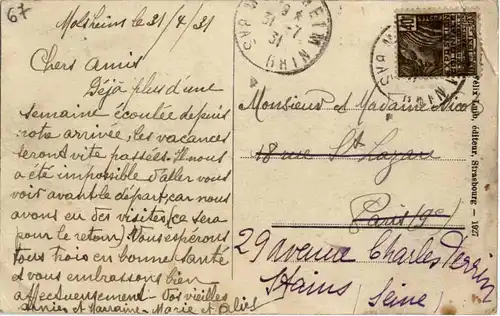 67
Molsheim le 31/7/31
Chers amis
Déjà plus d'une
semaine écoulée depuis
votre arrivée, les vacances
seront vite passées. Il nous
a été impossible d'aller vous
voir avant le départ, car nous
avons eu des visites (ce sera
pour le retour). Nous espérons
tous trois en bonne santé
et vous embrassons bien
affectueusement - Vos vieilles
amies et Marraine - Marie et
BAS RHIN
31 -7
31
Monsieur et Madame
18 rue St Lazare
Paris (9e)
29 Avenue Charles Perrin
Stains (Seine)
éditeur, Strasbourg — 1927